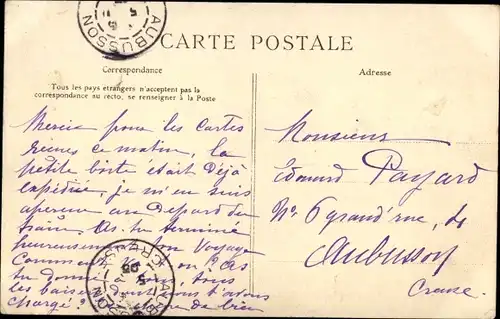 AUBUSSON
CARTE POSTALE
Correspondance
Adresse
Tous les pays étrangers n'acceptent pas la
correspondance au recto, se renseigner à la Poste
Mercis pour les Cartes
reçues ce matin, la
petite boîte était Déjà
expédiée, je m'en suis
aperçu au Départ du
train. As-tu terminé
heureusement ton Voyage
Comment
tu tous
les baisers dont nous t'avons
chargé? de bien
Monsieur
Edmond Payard
No 6 grand'rue, de
Aubusson
Creuse